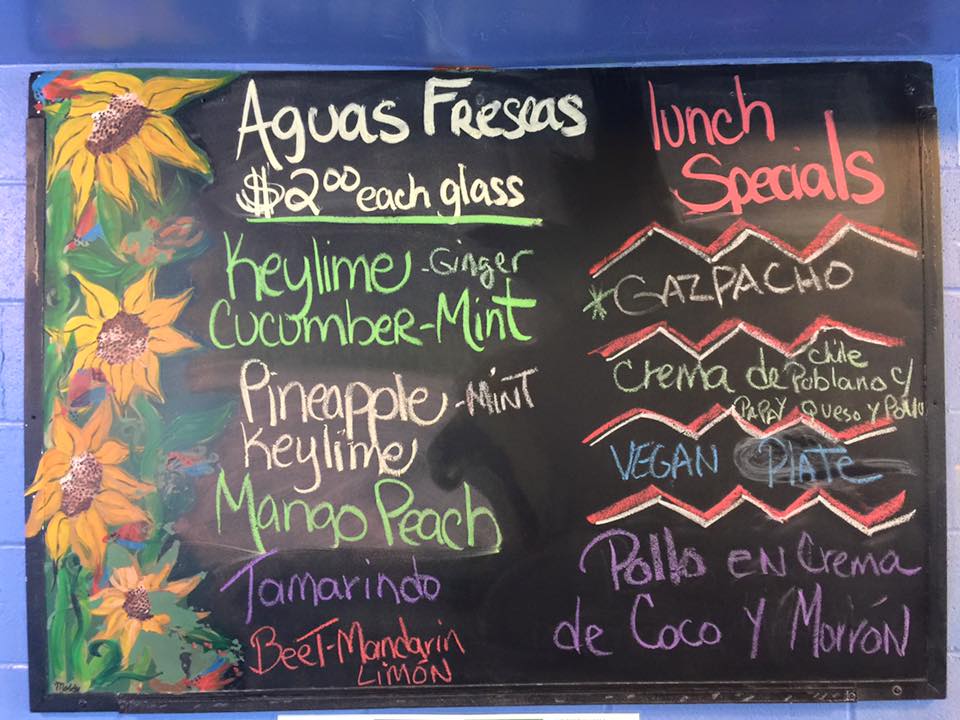 Aguas Frescas
$2.00 each glass
Keylime - Ginger
Cucumber - Mint
Pineapple - Mint
Keylime
Mango Peach
Tamarindo
Beet - Mandarin
Limón
lunch
Specials
*GAZPACHO
Crema de Chile
Poblano c/
PAPA Y Queso y Pollo
VEGAN Plate
Pollo EN Crema
de Coco y Morrón